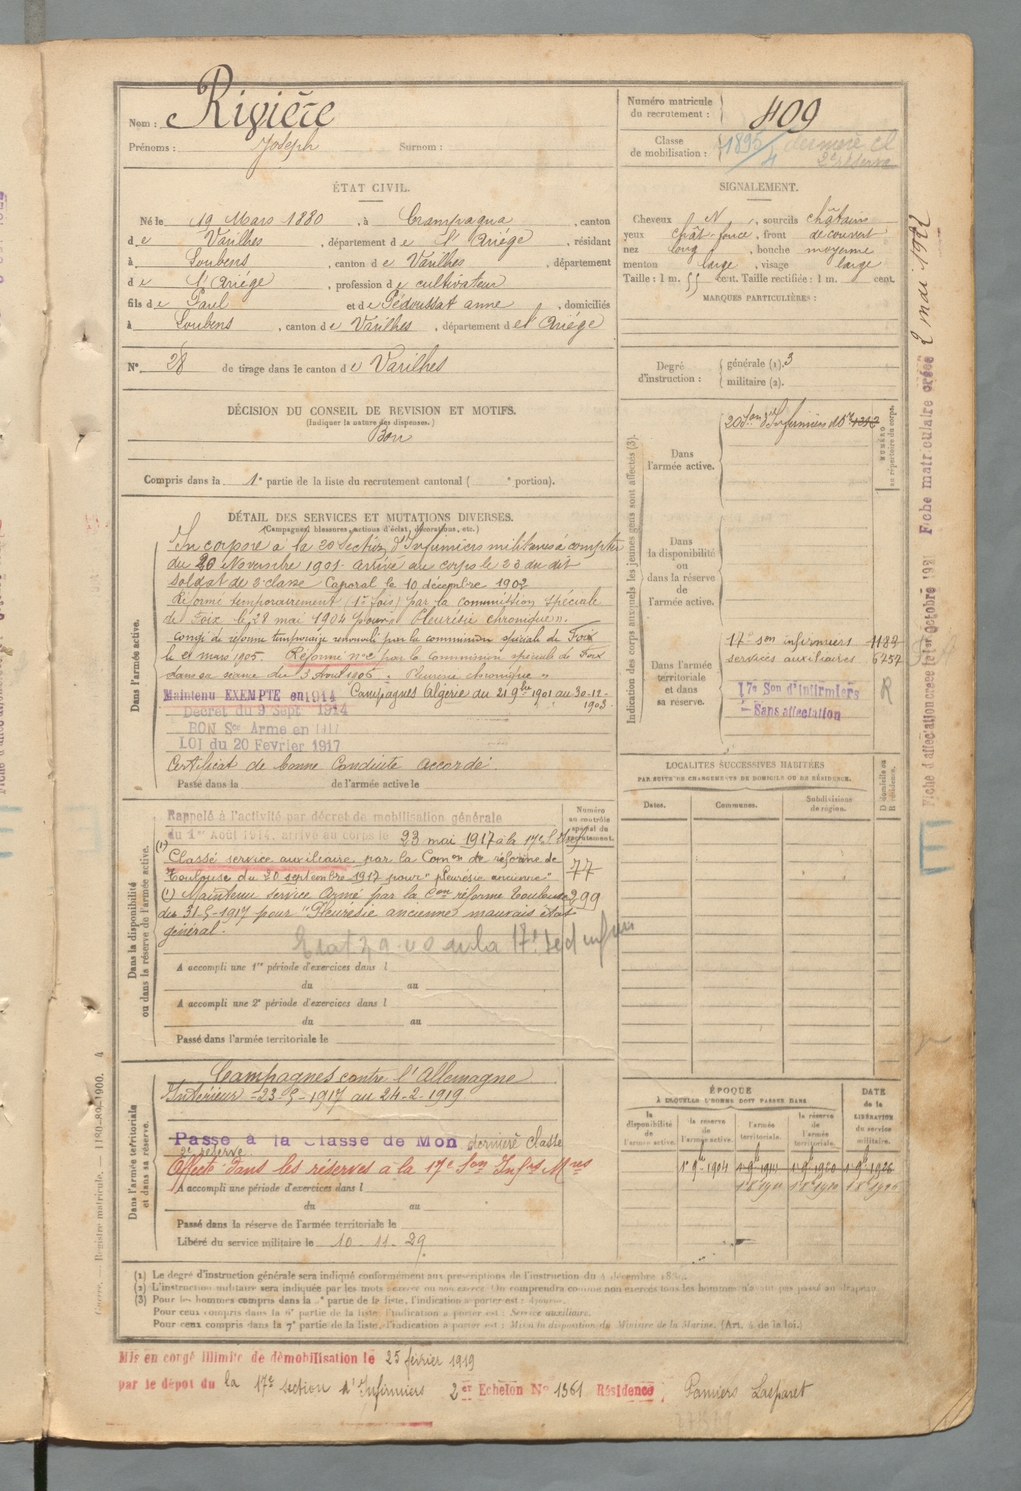 Nom : Rivière
Prénoms : Joseph Surnom :
Numéro matricule
du recrutement : 409
Classe
de mobilisation : 1895/4 dernière cl
2e réserve
ÉTAT CIVIL.
Né le 19 Mars 1880, à Crampagna, canton
de Varilhes, département de l'Ariége, résidant
à Loubens, canton de Varilhes, département
de l'Ariége, profession de cultivateur
fils de Paul et de Pédoussat anne, domiciliés
à Loubens, canton de Varilhes, département de l'Ariége
N° 28 de tirage dans le canton de Varilhes
SIGNALEMENT.
Cheveux N, sourcils châtains
yeux chât foncé, front découvert
nez long, bouche moyenne
menton large, visage large
Taille : 1 m. 55 cent. Taille rectifiée : 1 m. cent.
MARQUES PARTICULIÈRES :
Degré
d'instruction :
générale (1). 3
militaire (2).
DÉCISION DU CONSEIL DE REVISION ET MOTIFS.
(Indiquer la nature des dispenses.)
Bon
Compris dans la 1e partie de la liste du recrutement cantonal ( e portion).
DÉTAIL DES SERVICES ET MUTATIONS DIVERSES.
(Campagnes, blessures, actions d'éclat, décorations, etc.)
Dans l'armée active.
Incorporé à la 20 Section d'Infirmiers militaires à compter
du 20 Novembre 1901. Arrivé au corps le 23 du dit
Soldat de 2e classe Caporal le 10 décembre 1902
Réformé temporairement (1e fois) par la commission spéciale
de Foix le 28 mai 1904 pour « Pleurésie chronique ».
Congé de réforme temporaire renouvelé par la commission spéciale de Foix
le 21 mars 1905. Réformé n°2 par la commission spéciale de Foix
dans sa séance du 3 Aout 1906 « Pleurésie chronique »
Maintenu EXEMPTE en 1914 Campagnes Algérie du 21 9bre 1901 au 30-12-
1903.
Decret du 9 Sept 1914
BON Sce Arme en 1917
LOI du 20 Fevrier 1917
Certificat de bonne Conduite accordé
Passé dans la de l'armée active le
Indication des corps auxquels les jeunes gens sont affectés (3).
NUMÉRO
au répertoire du corps.
Dans
l'armée active.
20 Son d'Infirmiers
Dans
la disponibilité
ou
dans la réserve
de
l'armée active.
Dans l'armée
territoriale
et dans
sa réserve.
17e son infirmiers 1182
services auxiliaires 6757
17e Son d'Infirmiers
- Sans affectation
R
LOCALITÉS SUCCESSIVES HABITÉES
PAR SUITE DE CHANGEMENTS DE DOMICILE OU DE RÉSIDENCE.
Dates. Communes. Subdivisions
de région.
D domicile ou
R résidence.
Dans la disponibilité
ou dans la réserve de l'armée active.
Numéro
au contrôle
spécial du
recrutement.
Rappelé à l'activité par décret de mobilisation générale
du 1er Août 1914, arrivé au corps le 23 mai 1917 à la 17e
(1)
Classé service auxiliaire par la Comon de réforme de
Toulouse du 20 septembre 1917 pour "pleurésie ancienne" 77
(1) Maintenu service Armé par la Con réforme Toulouse 299
du 31-5-1917 pour "Pleurésie ancienne mauvais état
général.
A accompli une 1re période d'exercices dans l
du au
A accompli une 2e période d'exercices dans l
du au
Passé dans l'armée territoriale le
Dans l'armée territoriale
et dans sa réserve.
Campagnes contre l'Allemagne
Intérieur - 23-5-1917 au 24-2-1919
Passé à la Classe de Mob dernière classe
2e réserve
Affecté dans les réserves à la 17e Son Infrs Mres
A accompli une période d'exercices dans l
du au
Passé dans la réserve de l'armée territoriale le
Libéré du service militaire le 10-11-29
ÉPOQUE
À LAQUELLE L'HOMME DOIT PASSER DANS
la
disponibilité
de
l'armée active.
la réserve
de
l'armée active.
l'armée
territoriale.
la réserve
de
l'armée
territoriale.
DATE
de la
LIBÉRATION
du service
militaire.
1e 9b 1904 1e 9b 1914 1e 9b 1920 1e 9b 1926
(1) Le degré d'instruction générale sera indiqué conformément aux prescriptions de l'instruction du 4 décembre 1889.
(2) L'instruction militaire sera indiquée par les mots : exercé ou non exercé. On comprendra comme non exercés tous les hommes n'ayant pas passé au drapeau.
(3) Pour les hommes compris dans la partie de la liste, l'indication à porter est :
Pour ceux compris dans la partie de la liste, l'indication à porter est : Service auxiliaire.
Pour ceux compris dans la 7e partie de la liste, l'indication à porter est : Mis à la disposition du Ministre de la Marine. (Art. 4 de la loi.)
Mis en congé illimité de démobilisation le 25 février 1919
par le dépôt du la 17e section d'Infirmiers 2er Echelon N° 1361 Résidence Pamiers Lasparet
Registre matricule. — 1180-89-1900. 4
Fiche matriculaire créée 2 mai 1922